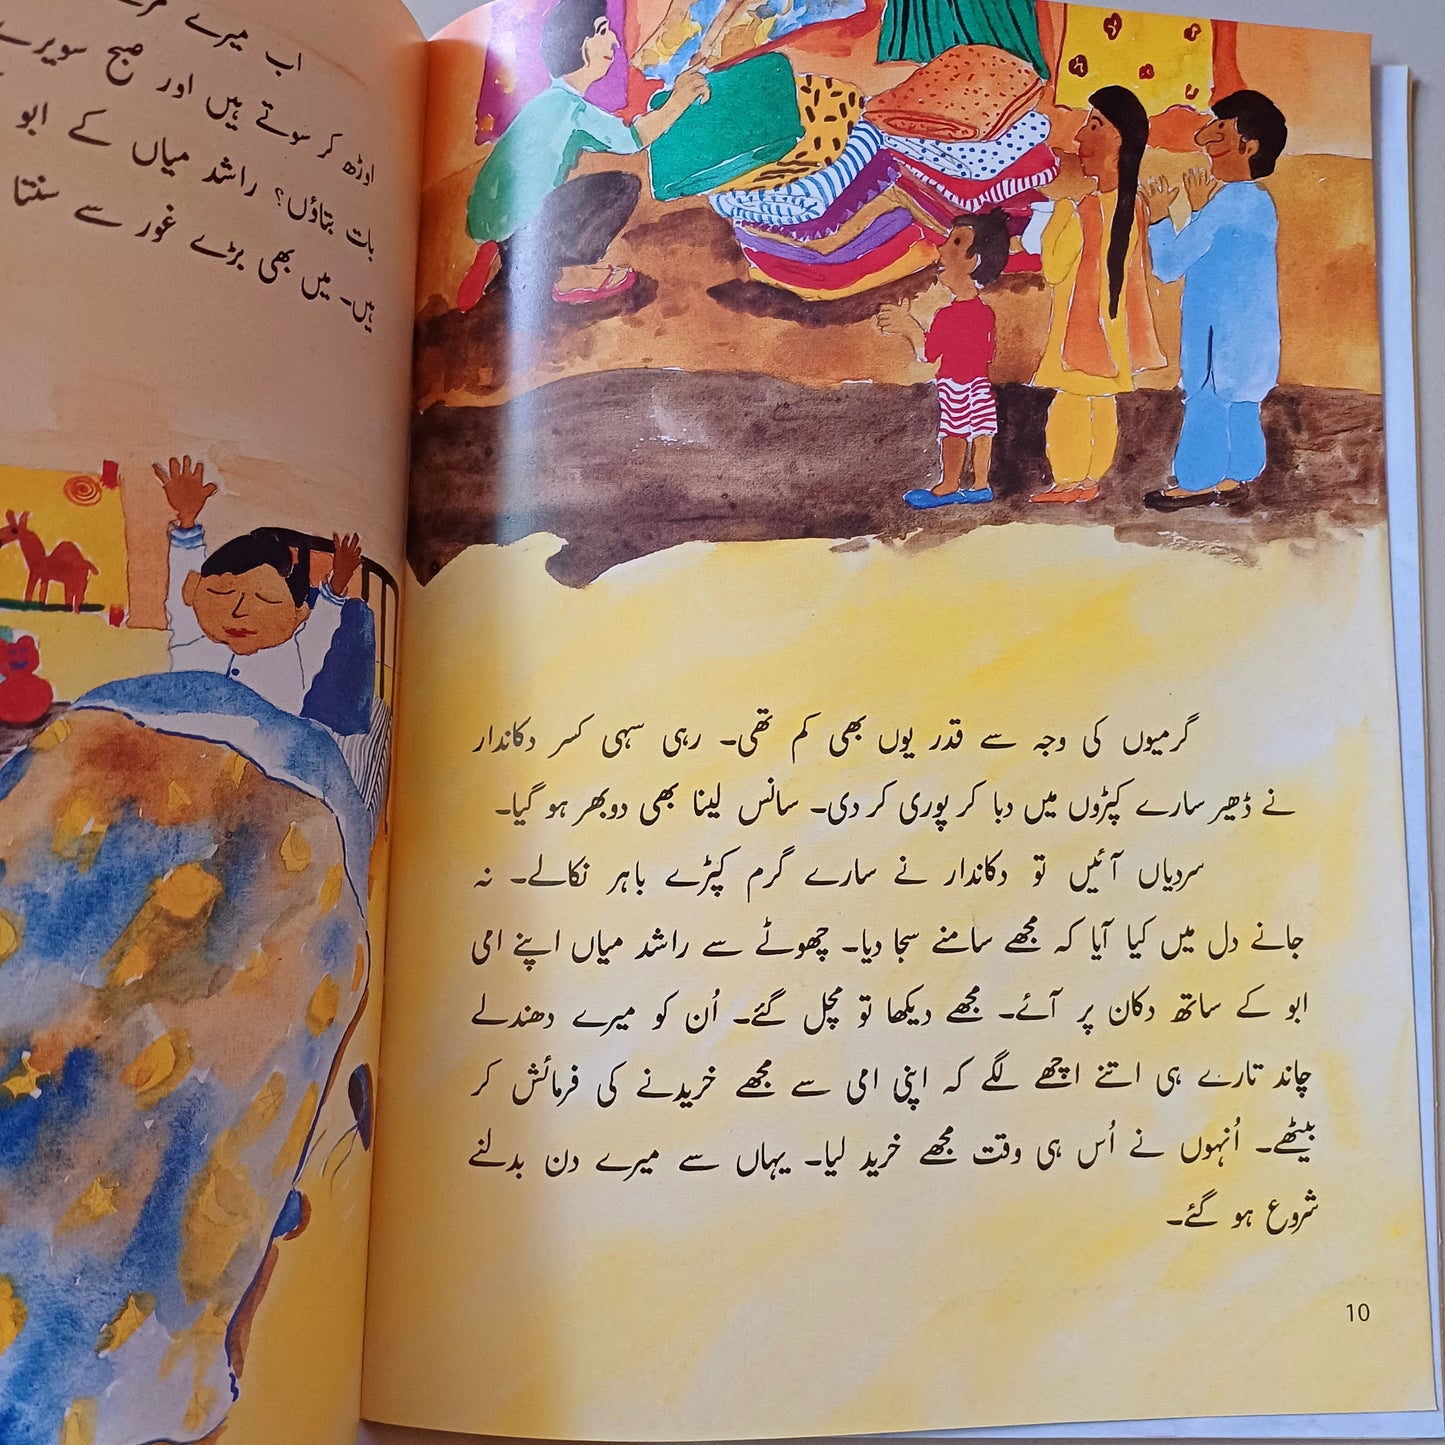 گرمیوں کی وجہ سے قدر یوں بھی کم تھی۔ رہی سہی کسر دکاندار
نے ڈھیر سارے کپڑوں میں دبا کر پوری کر دی۔ سانس لینا بھی دوبھر ہو گیا۔
سردیاں آئیں تو دکاندار نے سارے گرم کپڑے باہر نکالے۔ نہ
جانے دل میں کیا آیا کہ مجھے سامنے سجا دیا۔ چھوٹے سے راشد میاں اپنے امی
ابو کے ساتھ دکان پر آئے۔ مجھے دیکھا تو مچل گئے۔ اُن کو میرے دھندلے
چاند تارے ہی اتنے اچھے لگے کہ اپنی امی سے مجھے خریدنے کی فرمائش کر
بیٹھے۔ اُنہوں نے اُس ہی وقت مجھے خرید لیا۔ یہاں سے میرے دن بدلنے
شروع ہو گئے۔
10
اب میرے
اوڑھ کر سوتے ہیں اور صبح سویرے
بات بتاؤں؟ راشد میاں کے ابو
ہیں۔ میں بھی بڑے غور سے سنتا